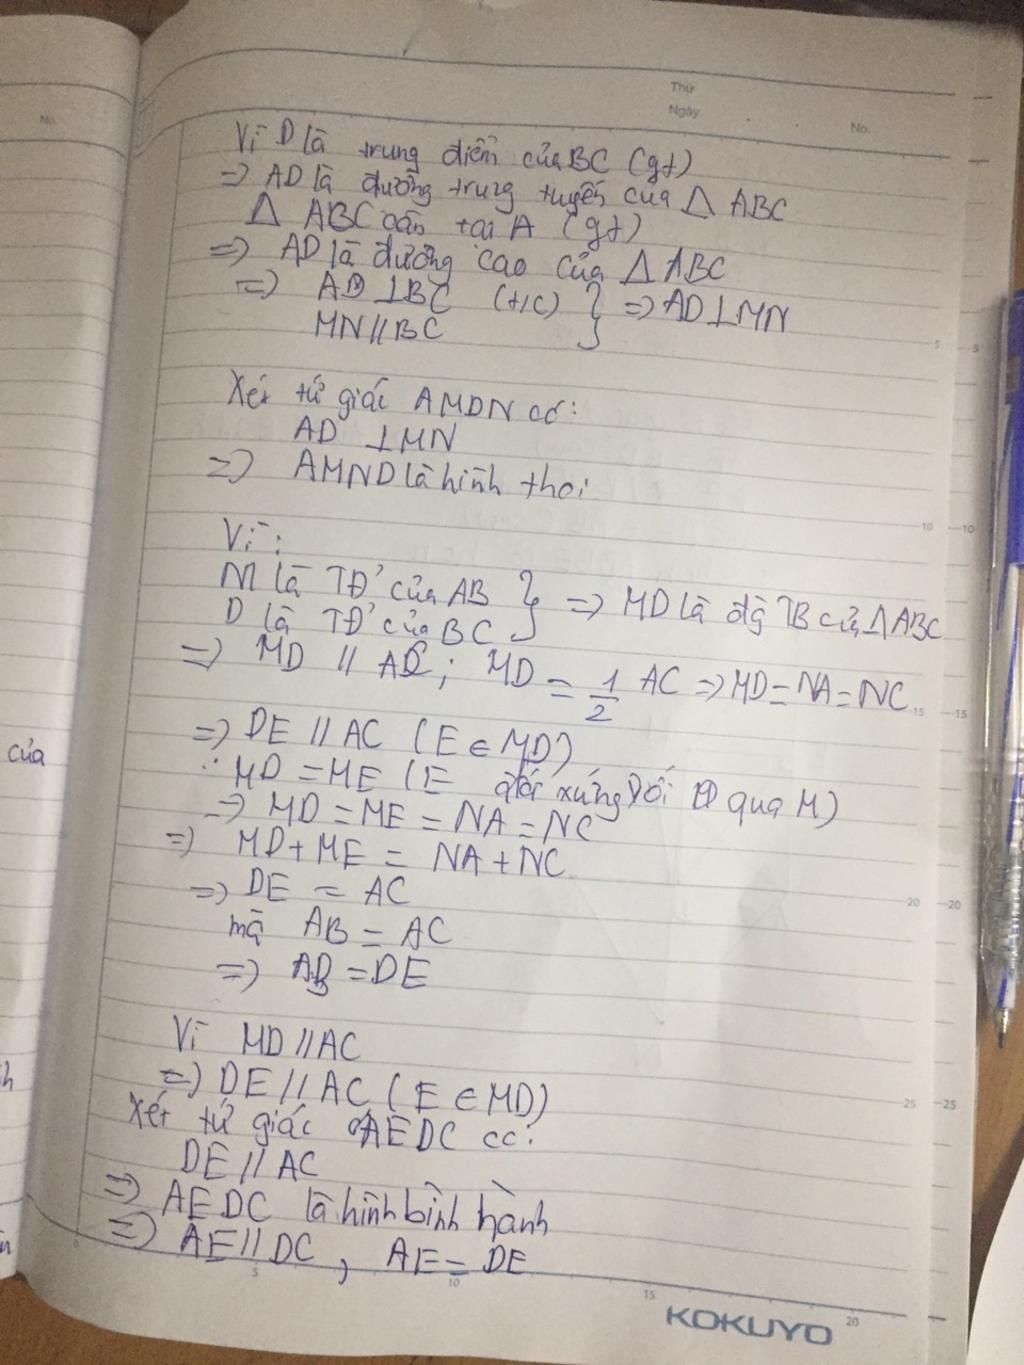 Thứ
Ngày
No.
No.
Vì D là trung điểm của BC (gt)
=> AD là đường trung tuyến của Δ ABC
Δ ABC cân tại A (gt)
=> AD là đường cao của Δ ABC
=> AD ⊥ BC (t/c) } => AD ⊥ MN
MN // BC
Xét tứ giác AMDN có:
AD ⊥ MN
=> AMND là hình thoi
Vì:
M là TĐ' của AB } => MD là đg TB của Δ ABC
D là TĐ' của BC
=> MD // AC; MD = 1/2 AC => MD = NA = NC
=> DE // AC (E ∈ MD)
MD = ME (E đối xứng với D qua M)
=> MD = ME = NA = NC
=> MD + ME = NA + NC
=> DE = AC
mà AB = AC
=> AB = DE
Vì MD // AC
=> DE // AC (E ∈ MD)
Xét tứ giác AEDC có:
DE // AC
=> AEDC là hình bình hành
=> AE // DC, AE = DE
của
5
5
10
10
15
15
20
20
25
25
5
10
15
20
KOKUYO